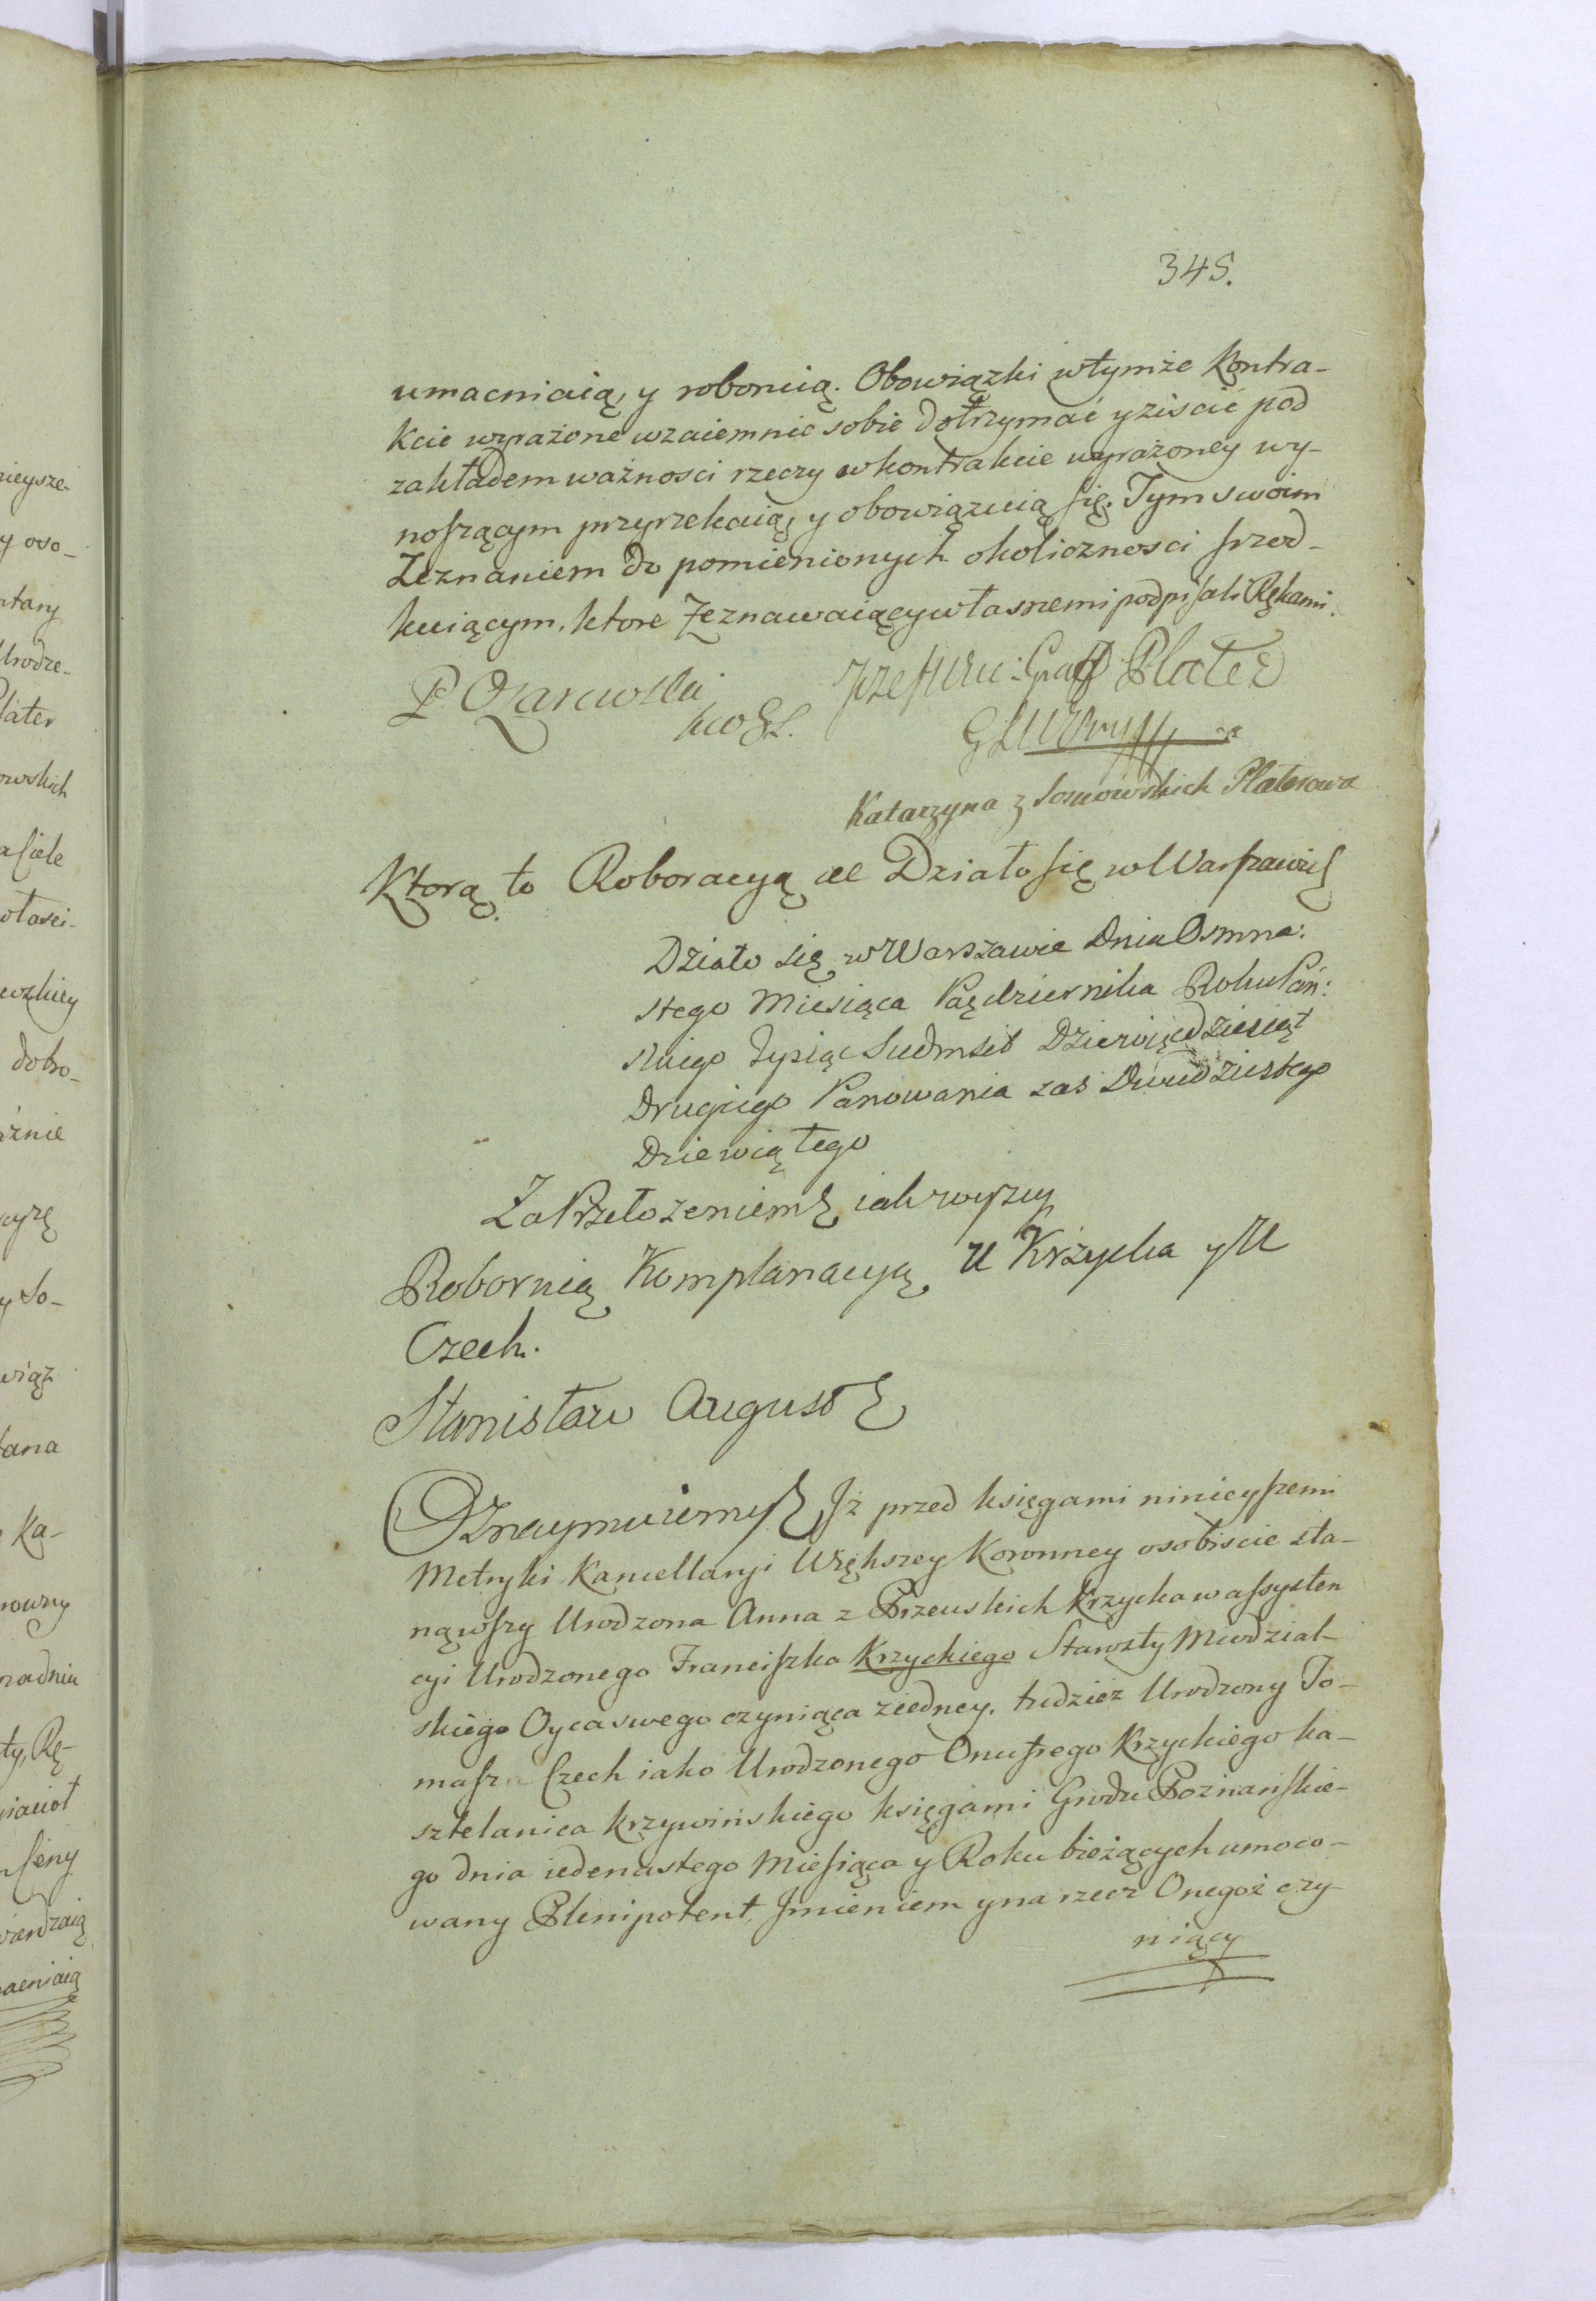 345.
umacniaią, y roboruią. Obowiązki wtymże Kontra-
kcie wyrażone wzaiemnie sobie dotrzymać y ziscić pod
zakładem ważnosci rzeczy w kontrakcie wyrażoney wy-
noszącym przyrzekaią, y obowiązuią się. Tym swoim
Zeznaniem do pomienionych okolicznosci srzod-
kuiącym. ktore Zeznawaiący własnemi podpisali Rękami.
P. Ożarowski
Graff Plater
Katarzyna z Sosnowskich Platerowa
Ktorą to Roboracyą al Działo się w Warszawie
Działo się w Warszawie Dnia Osmna:
stego Miesiąca Pazdziernika Roku Pań:
skiego Tysiąc Siedmset Dziewięcdziesiąt
Drugiego Panowania zas Dwudziestego
Dziewiątego
Za Przełożeniem iak wyszey
Robornią Komplanacyą U Krzycka y U
Czech.
Stanisław August
Oznaymuiemy Iż przed księgami ninieyszemi
Metryki Kancellaryi Większey Koronney osobiscie sta-
nąwszy Urodzona Anna z Krzycka w assysten
cyi Urodzonego Franciszka Krzyckiego Starosty Mwdzial-
skiego Oyca swego czyniąca ziedney, tudziez Urodzony To-
masz Czech iako Urodzonego Onufrego Krzyckiego ka-
sztelanica krzywińskiego księgami Grodu Poznańskie-
go dnia iedenastego Miesiąca y Roku bieżących umoco-
wany Plenipotent, Imieniem y na rzecz Onegoż czy-
niący
nieysze-
y oso-
Urodze-
Plater
owskich
dobro-
y So-
Ka-